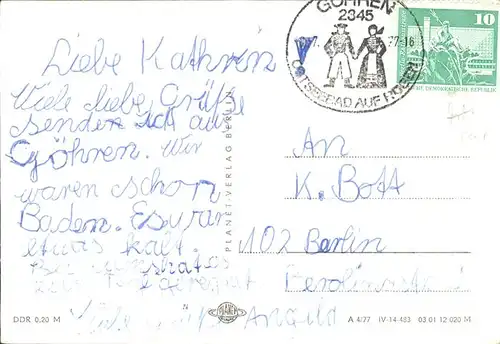 GÖHREN
2345
OSTSEEBAD AUF RÜGEN
10
DEUTSCHE DEMOKRATISCHE REPUBLIK
Liebe Kathrin
Viele liebe Grüße
senden ich aus
Göhren. Wir
waren schon
Baden. Es war
etwas kalt.
Viele
An
K. Bott
102 Berlin
PLANET-VERLAG BERLIN
DDR 0,20 M
PLANET
A 4/77 IV-14-483 03 01 12 020 M